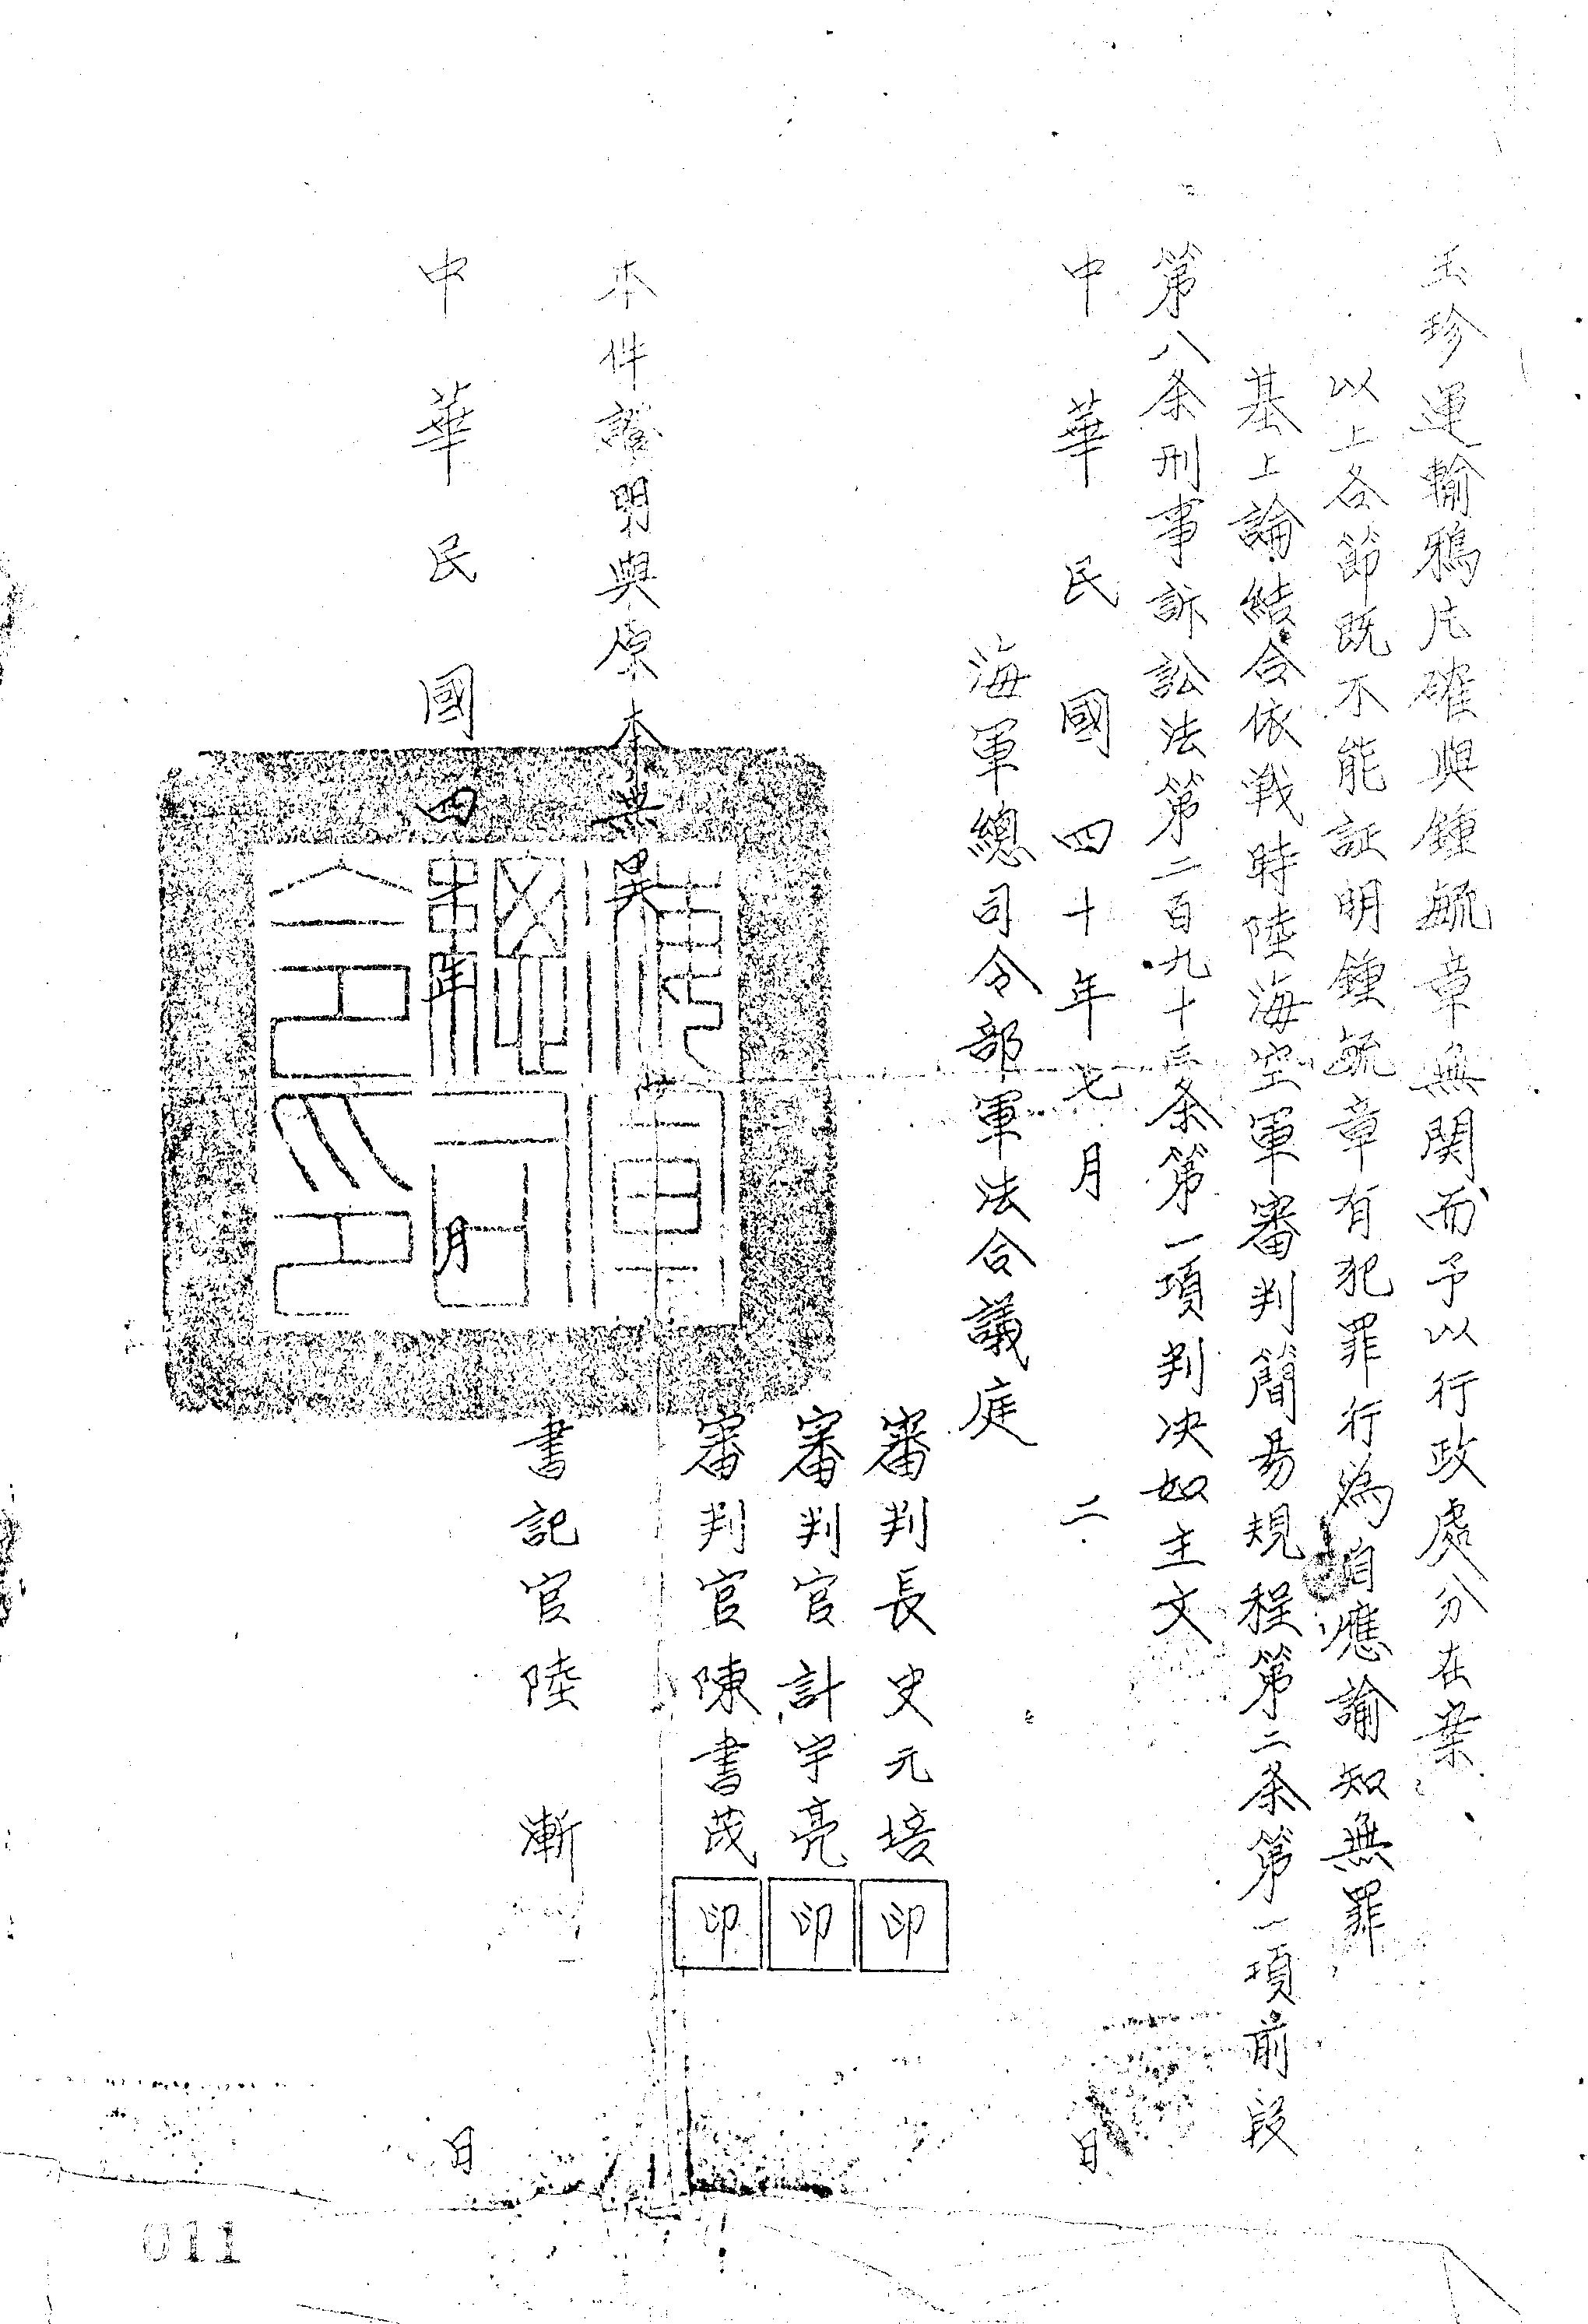 玉珍運輸鴉片確與鍾毓章無関而予以行政處分在案
以上各節既不能証明鍾毓章有犯罪行為自應諭知無罪
基上論結合依戰時陸海空軍審判簡易規程第二条第一項前段
第八条刑事訴訟法第二百九十三条第一項判决如主文
中華民國四十年七月二日
海軍總司令部軍法合議庭
審判長史元培印
審判官計宇亮印
審判官陳書茂印
本件證明與原本無異
書記官陸漸
中華民國四年月日
011